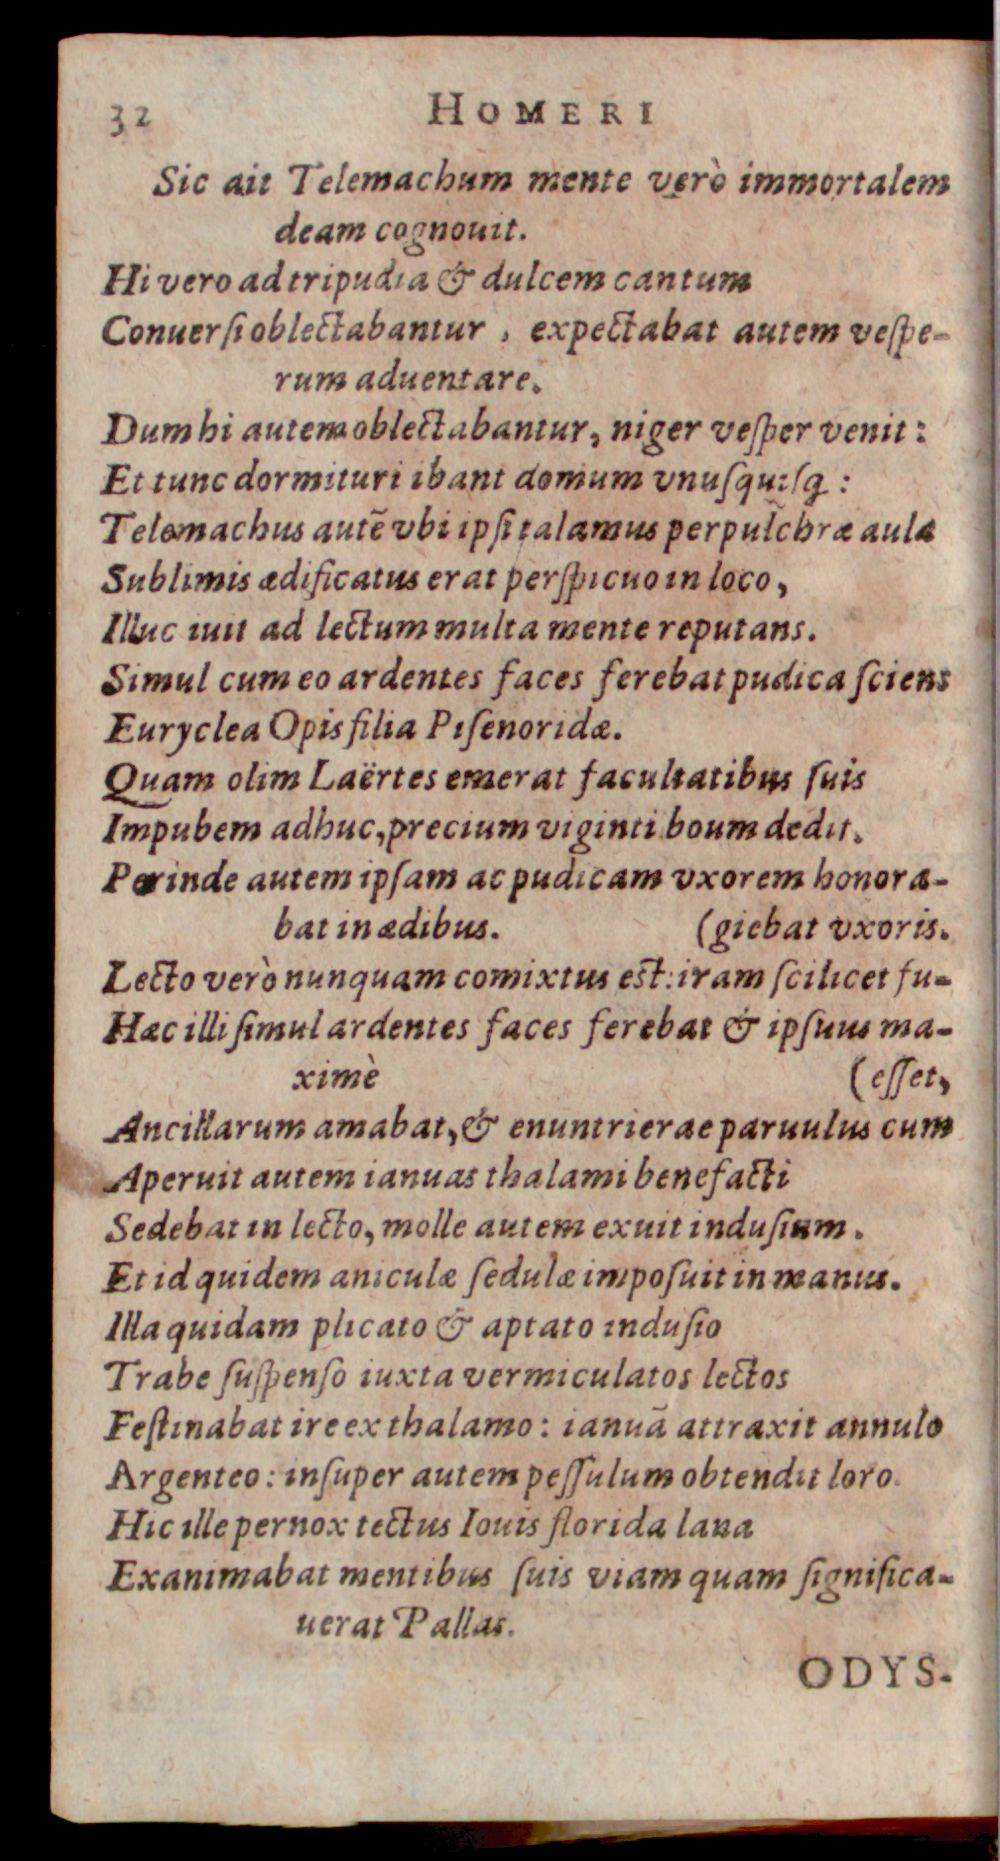 32 HOMERI
Sic ait Telemachum mente verò immortalem
deam cognouit.
Hi vero ad tripudia & dulcem cantum
Conuersi oblectabantur, expectabat autem vespe-
rum aduentare.
Dum hi autem oblectabantur, niger vesper venit:
Et tunc dormituri ibant domum vnusquisq:
Telemachus autẽ vbi ipsi talamus perpulchræ aulæ
Sublimis ædificatus erat perspicuo in loco,
Illuc iuit ad lectum multa mente reputans.
Simul cum eo ardentes faces ferebat pudica sciens
Euryclea Opis filia Pisenoridæ.
Quam olim Laërtes emerat facultatibus suis
Impubem adhuc, precium viginti boum dedit.
Perinde autem ipsam ac pudicam vxorem honora-
bat in ædibus. (giebat vxoris.
Lecto verò nunquam comixtus est: iram scilicet fu-
Hæc illi simul ardentes faces ferebat & ipsuus ma-
ximè (esset,
Ancillarum amabat, & enuntrierae paruulus cum
Aperuit autem ianuas thalami benefacti
Sedebat in lecto, molle autem exuit indusium.
Et id quidem aniculæ sedulæ imposuit in manus.
Illa quidam plicato & aptato indusio
Trabe suspenso iuxta vermiculatos lectos
Festinabat ire ex thalamo: ianuã attraxit annulo
Argenteo: insuper autem pessulum obtendit loro.
Hic ille pernox tectus Iouis florida lana
Exanimabat mentibus suis viam quam significa-
uerat Pallas.
ODYS-